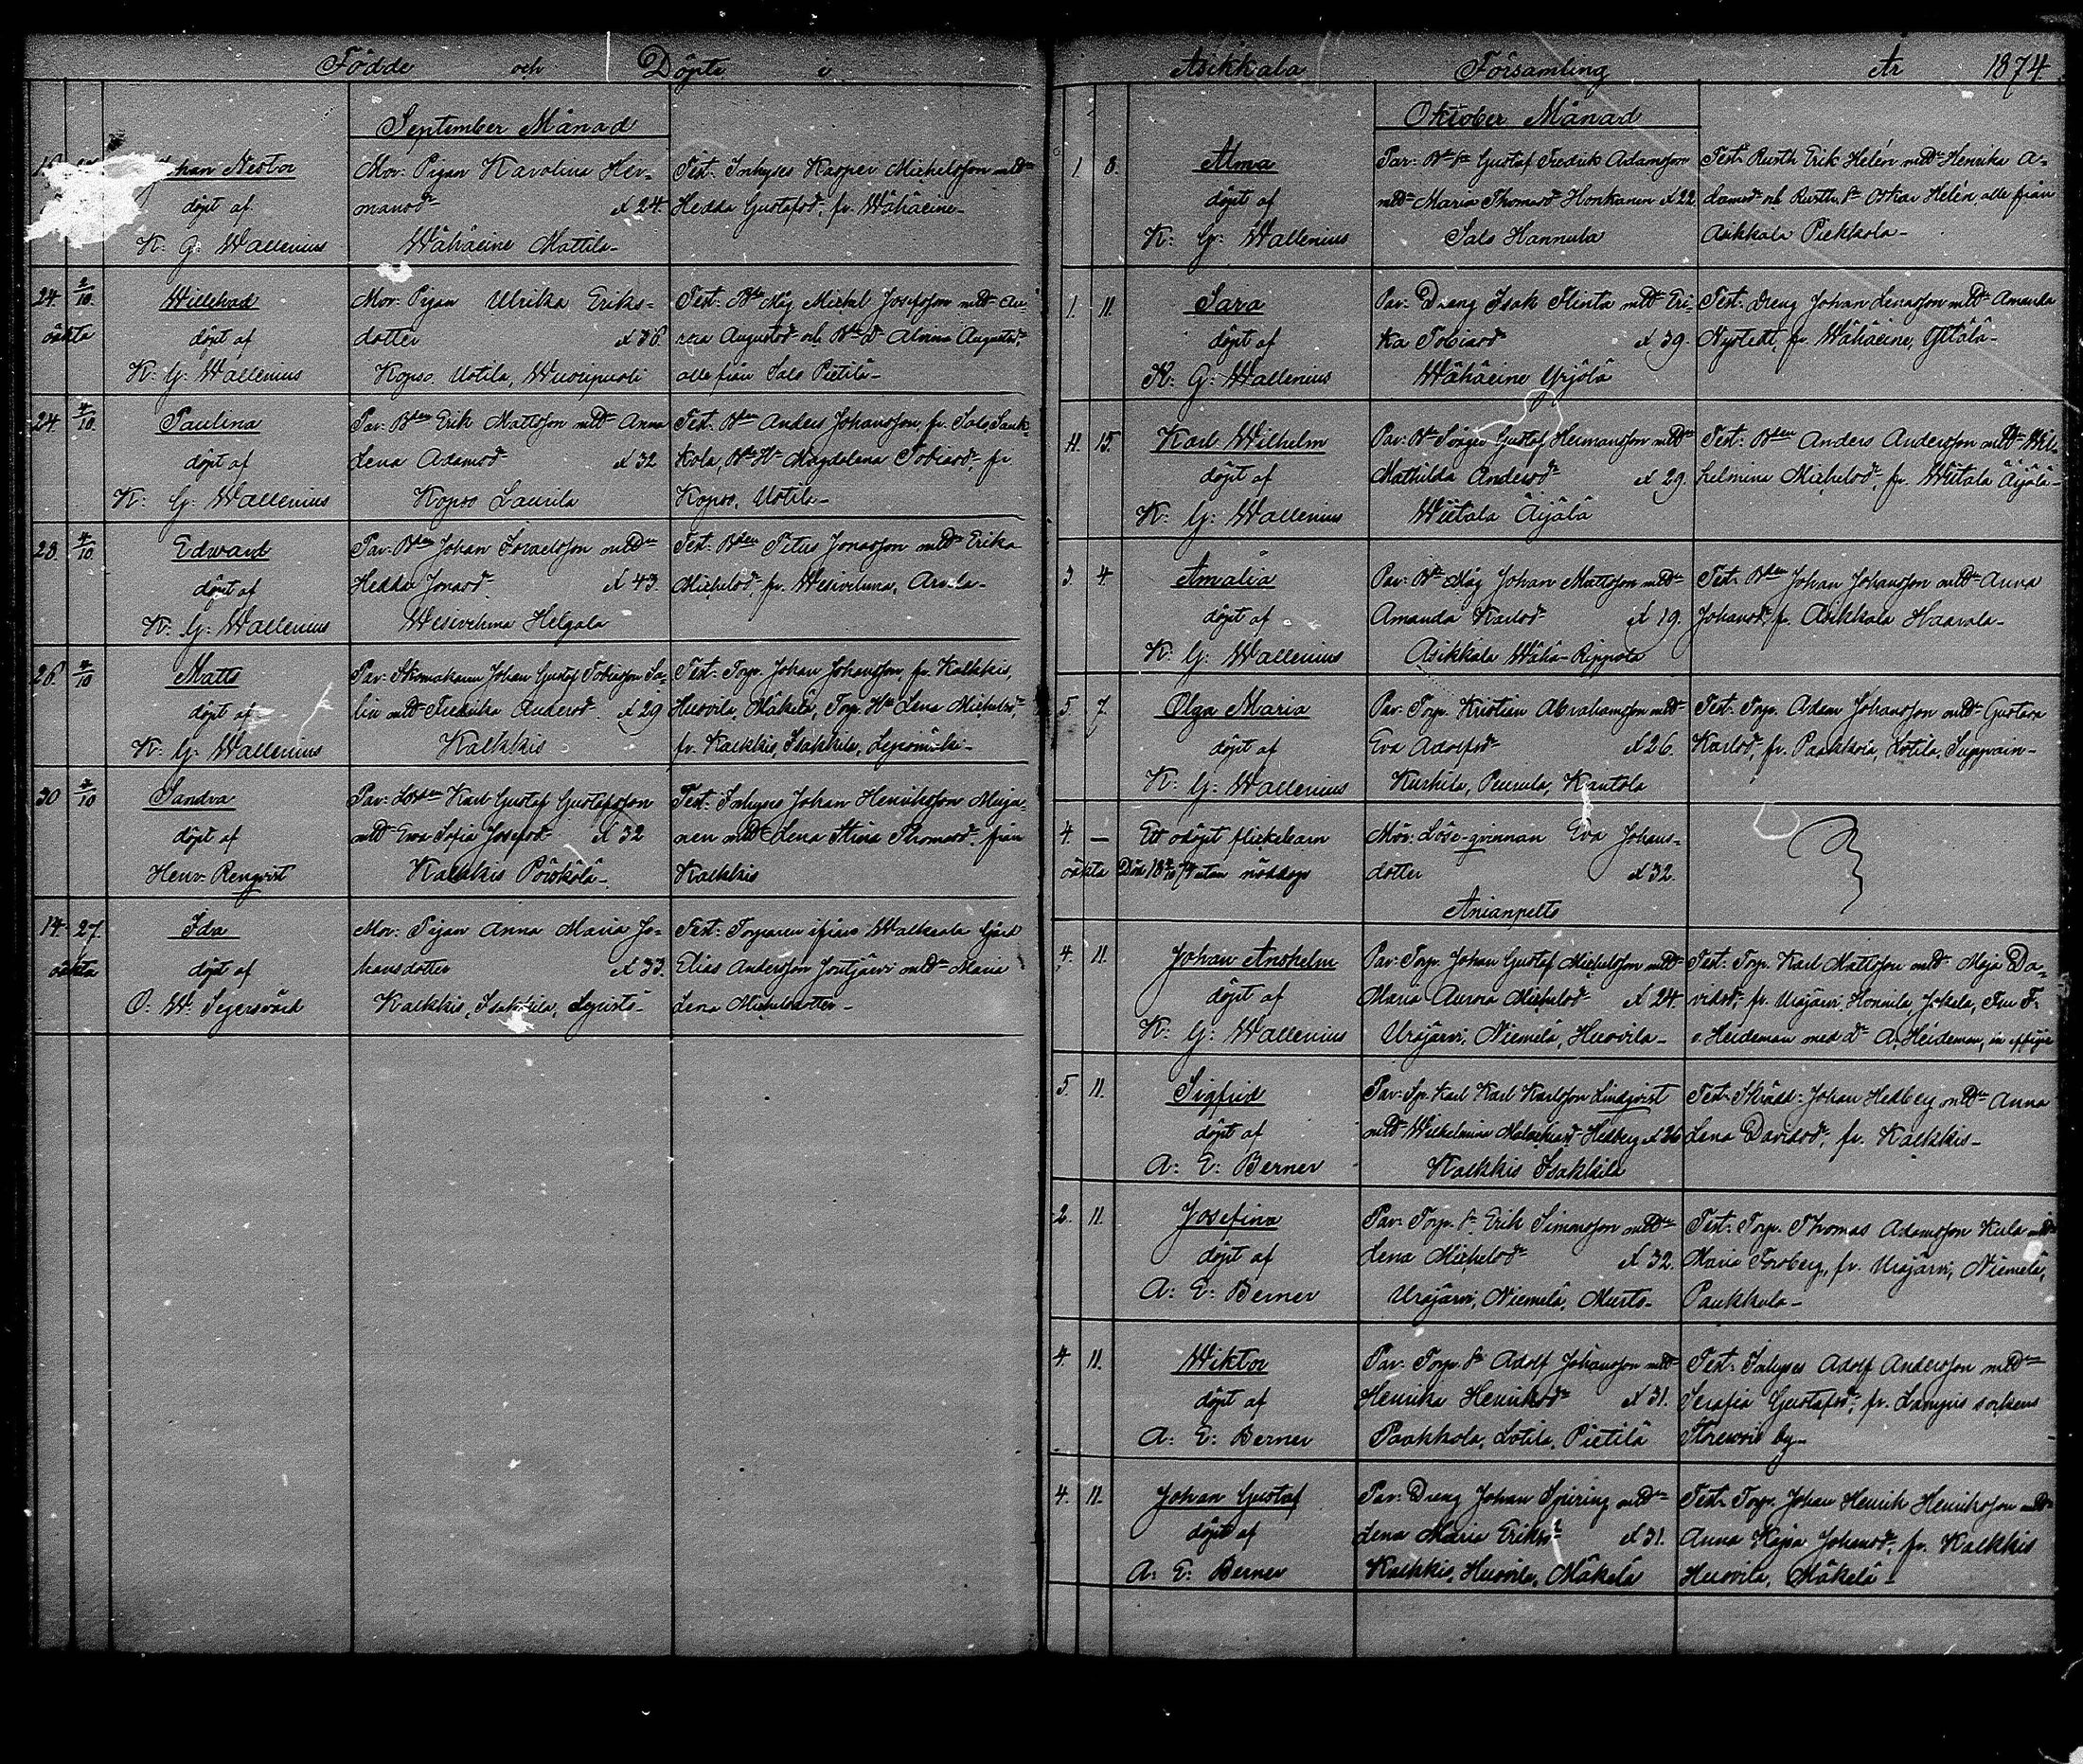 Födde och Döpte i
September Månad
Johan Nestor
döpt af
K: G: Wallenius
Mor: Pigan Karolina Her-
mansdr ä 24.
Wähäeine Mattila-
Test: Inhyses Kasper Michelsson mdhn
Hedda Gustafsdr, fr. Wähäeine-
24. 2/10.
oäkta
Willehad
döpt af
K: G: Wallenius
Mor: Pigan Ulrika Eriks-
dotter ä 36
Kopso Uotila, Wuoripuoli
Test: Bde Måg Michel Josefsson mdhn Au-
rora Augustdr och Bde dr Alvina Augustdr,
alla från Salo Pietilä-
24. 4/10.
Paulina
döpt af
K: G: Wallenius
Par: Bden Erik Mattsson mdhn Anna
Lena Adamsdr ä 32
Kopso Laurila
Test: Bden Anders Johansson, fr. Salo Sauk-
kola, Bde Hu Magdalena Tobiasdr, fr.
Kopso, Uotila-
28. 4/10
Edward
döpt af
K: G: Wallenius
Par: Bden Johan Israelsson mdhn
Hedda Jonasdr ä 43.
Wesivehma Helgala
Test: Bden Titus Jonasson mdhn Erika
Michelsdr, fr. Wesivehma, Arvela-
26. 4/10
Matts
döpt af
K: G: Wallenius
Par: Skomakaren Johan Gustaf Tobiasson Sa-
lin mdhn Fredrika Andersdr ä 29
Kalkkis
Test: Torp. Johan Johansson, fr. Kalkkis,
Huovila, Mäkelä, Torp. Hu Lena Michelsdr,
fr. Kalkkis, Isakkila,
30 4/10
Sandra
döpt af
Henr: Renqvist
Par: Bden Karl Gustaf Gustafsson
mdhn Ewa Sofia Josefsdr ä 32
Kalkkis Pörkölä-
Test: Inhyses Johan Henriksson Muja-
nen mdhn Lena Stina Thomasdr, från
Kalkkis
14. 27.
oäkta
Ida
döpt af
O: W: Segersvärd
Mor: Pigan Anna Maria Jo-
hansdotter ä 33.
Kalkkis, Isakkila,
Test: Torparen ifrån Walkeala
Elias Andersson Joutjärvi mdhn Maria
Lena Michelsdotter-
Asikkala Församling År 1874.
Oktober Månad
1. 8.
Alma
döpt af
K: G: Wallenius
Par: Bde Sn Gustaf Fredrik Adamsson
mdhn Maria Thomasdr Honkanen ä 22
Salo Hannula
Test: Rusth. Erik Helén mdhn Henrika A-
damsdr och Rusth. Sn Oskar Helén alla från
Asikkala Piekkola-
1. 11.
Sara
döpt af
K: G: Wallenius
Par: Dreng Isak Flinta mdhn Eri-
ka Tobiasdr ä 39.
Wähäeine Yrjölä
Test: Dreng Johan Lenasson mdhn Amanda
Nystedt, fr. Wähäeine,
11. 15.
Karl Wilhelm
döpt af
K: G: Wallenius
Par: Gustaf Hermansson mdhn
Mathilda Andersdr ä 29.
Wiitala Äijälä
Test: Bden Anders Andersson mdhn Wil-
helmina Michelsdr, fr. Wiitala Äijälä-
3. 4
Amalia
döpt af
K: G: Wallenius
Par: Bde Måg Johan Mattsson mdhn
Amanda Karlsdr ä 19.
Asikkala Wähä-Rippola
Test: Bden Johan Johansson mdhn Anna
Johansdr, fr. Asikkala Haavola-
5. 7.
Olga Maria
döpt af
K: G: Wallenius
Par: Torp. Kristian Abrahamsson mdhn
Eva Adolfsdr ä 26.
Kurhila, Peurula, Kantola
Test: Torp. Adam Johansson mdhn Gustava
Karlsdr, fr. Paakkola, Lotila,
4. —
oäkta
Ett odöpt flickebarn
utan nöddop
Mor: Löse-qvinnan Eva Johans-
dotter ä 32.
Anianpelto
4. 11.
Johan Anshelm
döpt af
K: G: Wallenius
Par: Torp. Johan Gustaf Michelsson mdhn
Maria Aurora Michelsdr ä 24.
Urajärvi, Niemelä, Huovila-
Test: Torp. Karl Mattsson mdhn Maja Da-
vidsdr, fr. Urajärvi, Jokela, Fru F.
v. Heideman med dr A. Heideman, in effigie
5. 11.
Sigfrid
döpt af
A: E: Berner
Par: Sp. Karl Karl Karlsson Lindqvist
mdhn Wilhelmina Hedberg ä 26
Kalkkis Isakkila
Test: Skrädd: Johan Hedberg mdhn Anna
Lena Davidsdr, fr. Kalkkis-
2. 11.
Josefina
döpt af
A: E: Berner
Par: Torp. Sn Erik Simonsson mdhn
Lena Michelsdr ä 32.
Urajärvi, Niemelä, Murto-
Test: Torp. Thomas Adamsson Kula mdhn
Maria Forsberg, fr. Urajärvi, Niemelä,
Paukkula-
4. 11.
Wiktor
döpt af
A: E: Berner
Par: Torp. Sn Adolf Johansson mdhn
Henrika Henriksdr ä 31.
Paakkola, Lotila, Pietilä
Test: Inhyses Adolf Andersson mdhn
Serafia Gustafsdr, fr. Lampis sockens
by-
4. 11.
Johan Gustaf
döpt af
A: E: Berner
Par: Dreng Johan Spiring mdhn
Lena Maria Eriksdr ä 31.
Kalkkis, Huovila, Mäkelä
Test: Torp. Johan Henrik Henriksson mdhn
Anna Kajsa Johansdr, fr. Kalkkis
Huovila, Mäkelä-